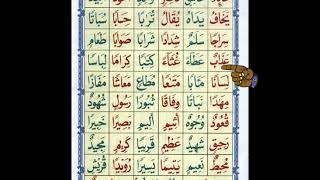 سُبَاتًا حِسَابًا تُرَابًا يُقَالُ يَدَاهُ يَخَافُ
طَعَامِ صَوَابًا شَرَابًا شِدَادًا سَلٰمٌ سِرَاجًا
لِبَاسًا كِرَامًا كِتٰبًا غُثَآءً عَطَآءً عَذَابٌ
مَفَازًا مَعَاشًا مُطَاعٍ مَتَاعًا مَاٰبًا لِسَانًا
شُهُودٌ رَسُولٍ ثُبُورًا وِفَاقًا نَبَاتًا مِهٰدًا
خَبِيرًا بَصِيرًا اَلِيمٍ اَثِيمٍ وُجُوهٌ قُعُودٌ
مَجِيدٌ كَرِيمٍ قَرِيبًا عَظِيمٍ شَهِيدٌ رَحِيقٍ
قُرَيْشٍ رُوَيْدًا يَسِيرًا يَتِيمًا نَعِيمٍ مُحِيطٌ